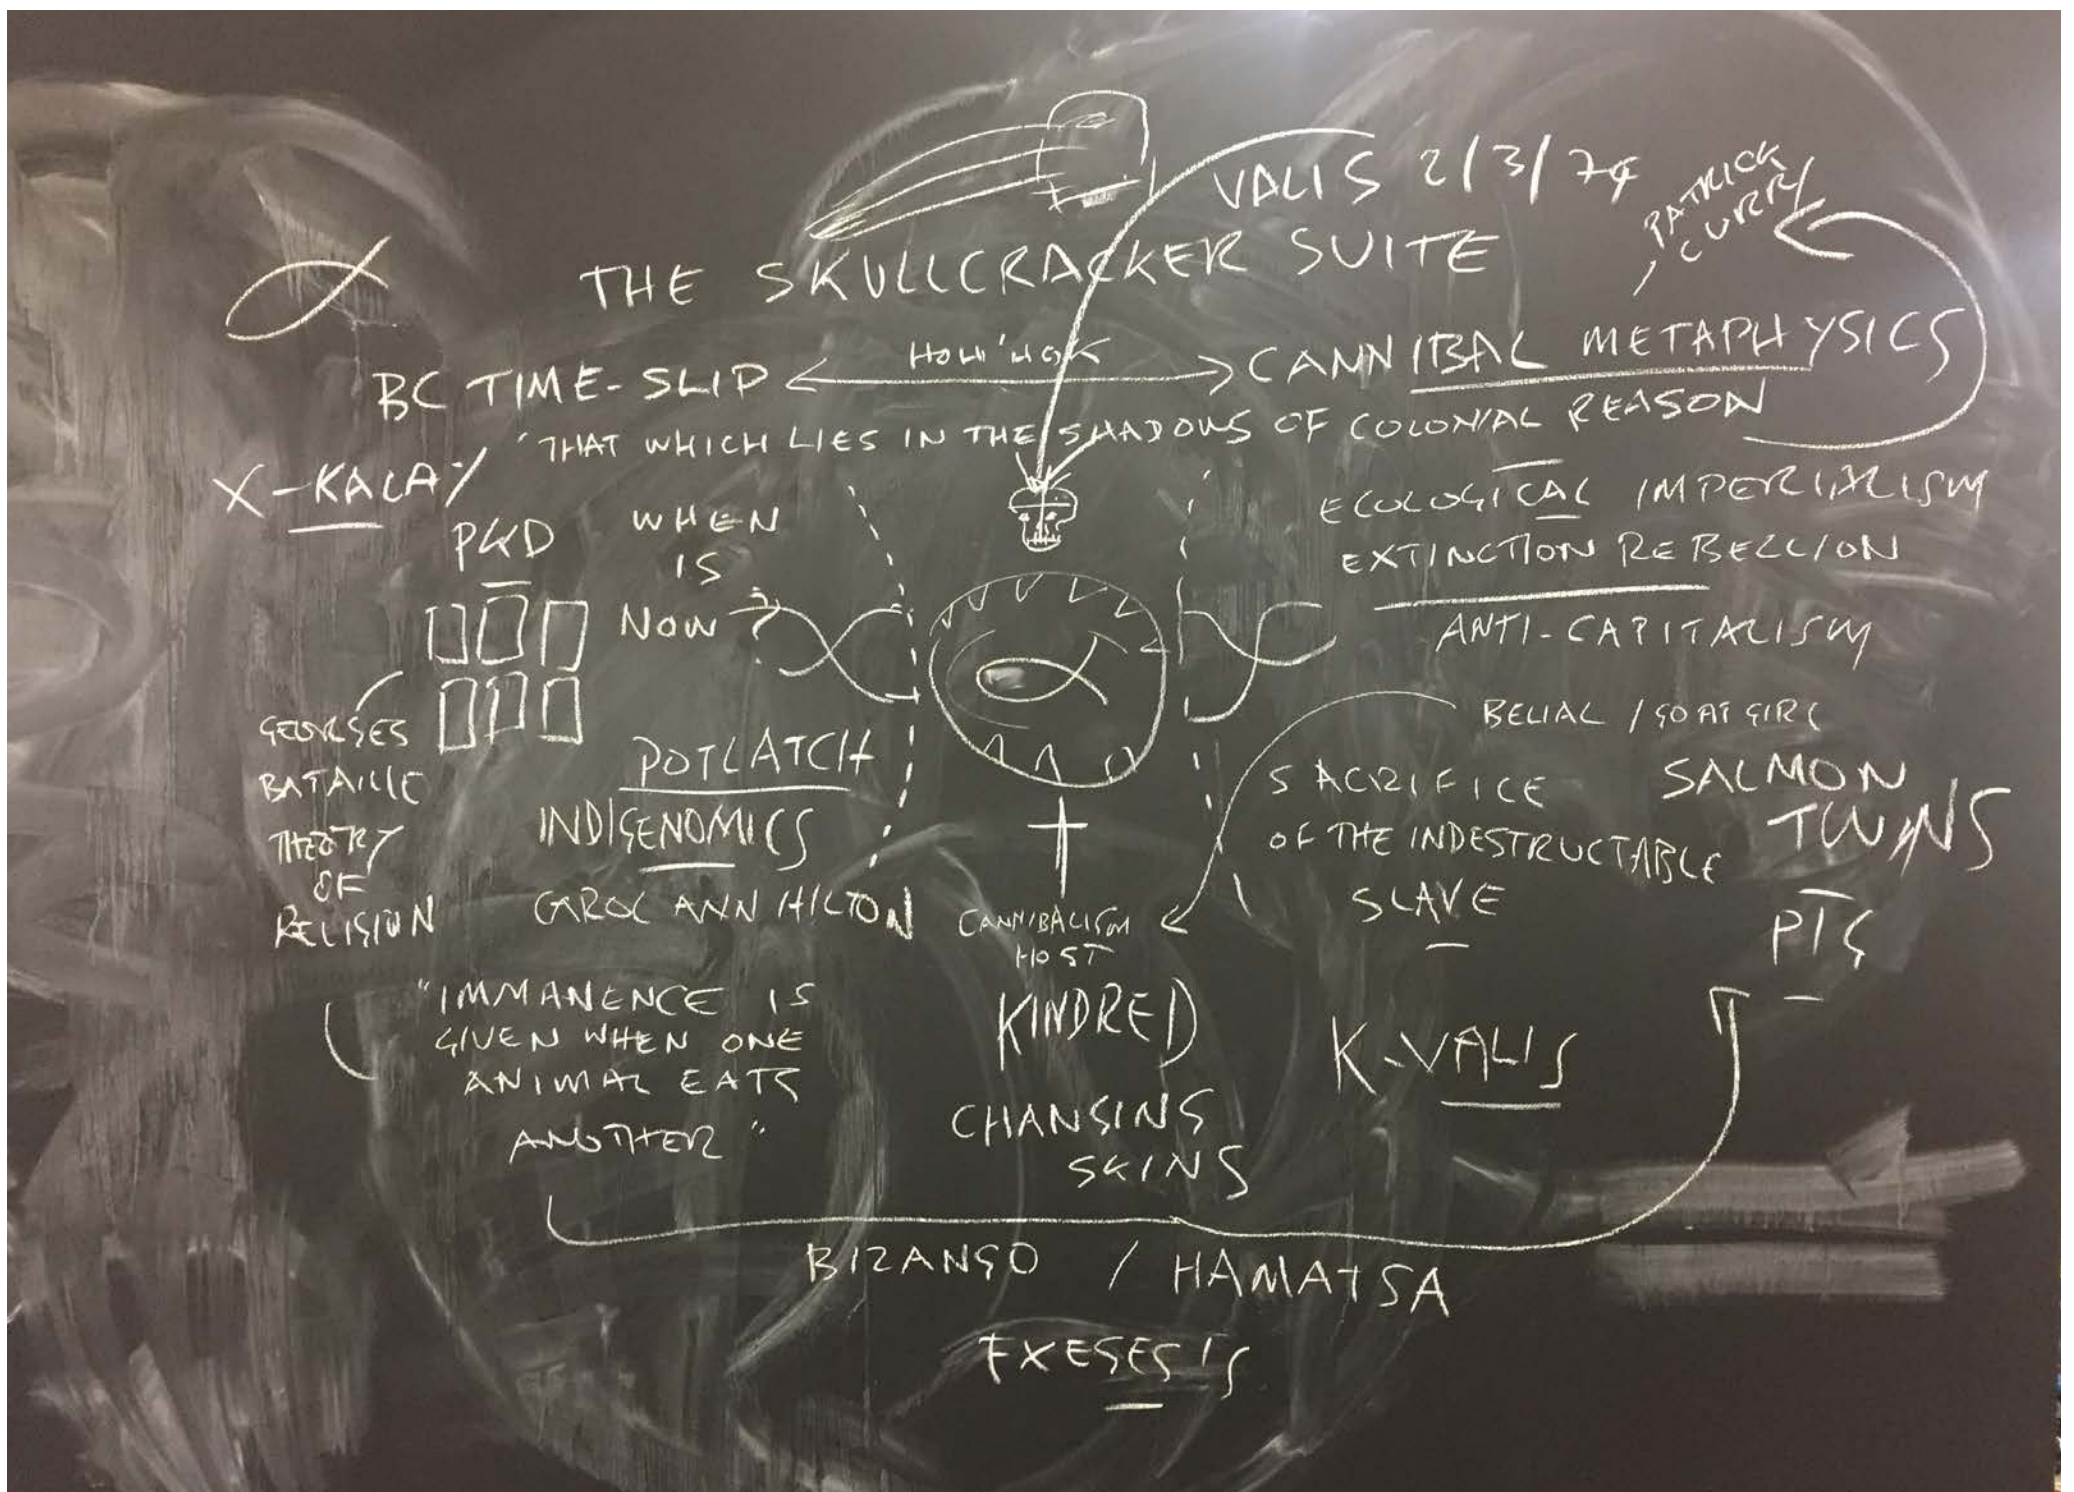 VALIS 2/3/74
PATRICK
CURRY
THE SKULLCRACKER SUITE
HOH'HOK
BC TIME-SLIP
CANNIBAL METAPHYSICS
"THAT WHICH LIES IN THE SHADOWS OF COLONIAL REASON
X-KALAY
PKD
WHEN
IS
NOW?
ECOLOGICAL IMPERIALISM
EXTINCTION REBELLION
ANTI-CAPITALISM
GEORGES
BATAILLE
THEORY
OF
RELIGION
POTLATCH
INDIGENOMICS
CAROL ANN HILTON
BELIAL / GOAT GIRL
SACRIFICE
OF THE INDESTRUCTABLE
SLAVE
SALMON
TWINS
PIG
CANNIBALISM
HOST
"IMMANENCE IS
GIVEN WHEN ONE
ANIMAL EATS
ANOTHER"
KINDRED
K-VALIS
CHANGING
SKINS
BIZANGO / HAMATSA
EXEGESIS